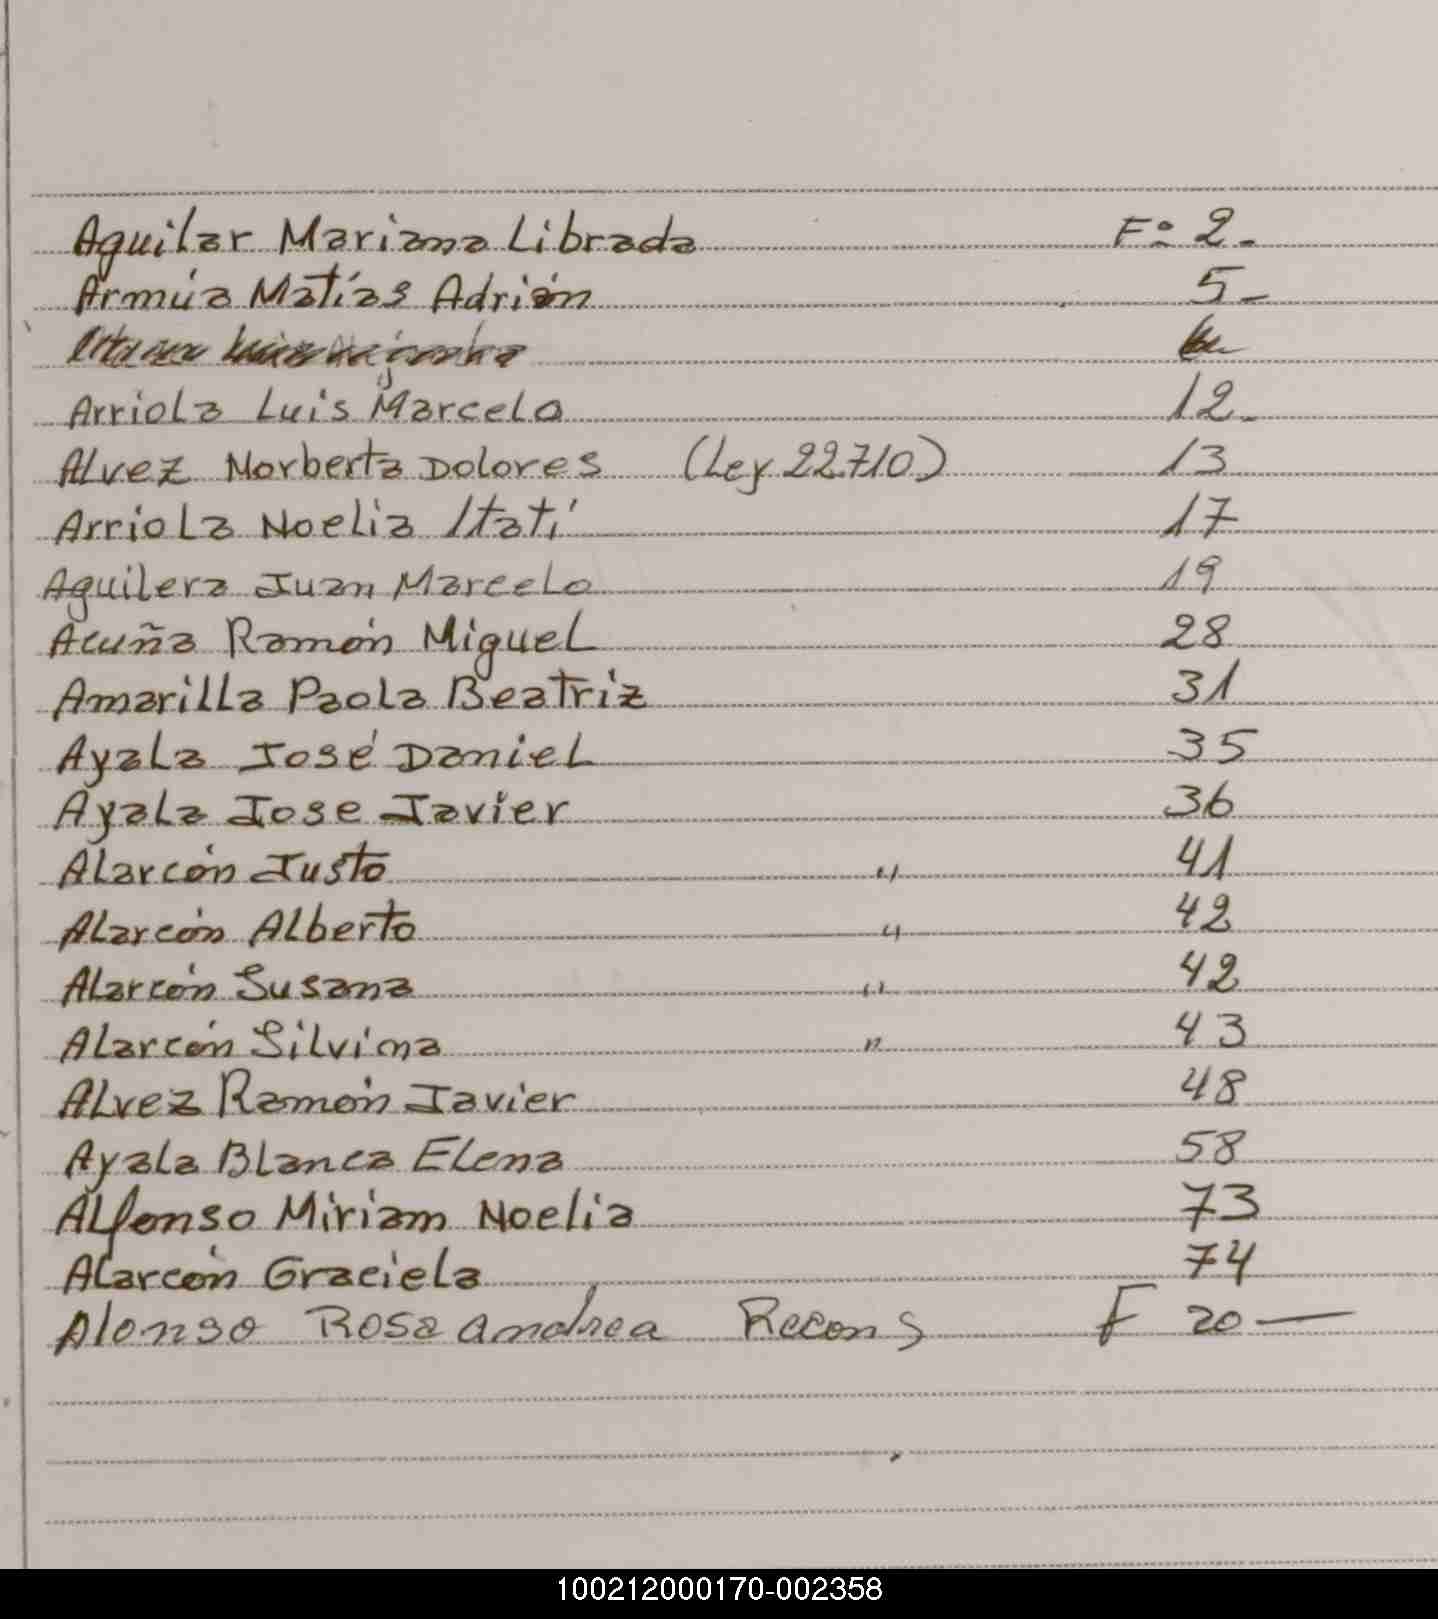 Aguilar Mariana Librada F: 2.
Armúa Matías Adrián 5-
Arriola Luis Marcelo 12.
Alvez Norberta Dolores (Ley 22710) 13
Arriola Noelia Itatí 17
Aguilera Juan Marcelo 19
Acuña Ramón Miguel 28
Amarilla Paola Beatriz 31
Ayala José Daniel 35
Ayala Jose Javier 36
Alarcón Justo " 41
Alarcón Alberto " 42
Alarcón Susana " 42
Alarcón Silvina " 43
Alvez Ramón Javier 48
Ayala Blanca Elena 58
Alfonso Miriam Noelia 73
Alarcón Graciela 74
Alonso Rosa Andrea Recons F 20—
100212000170-002358